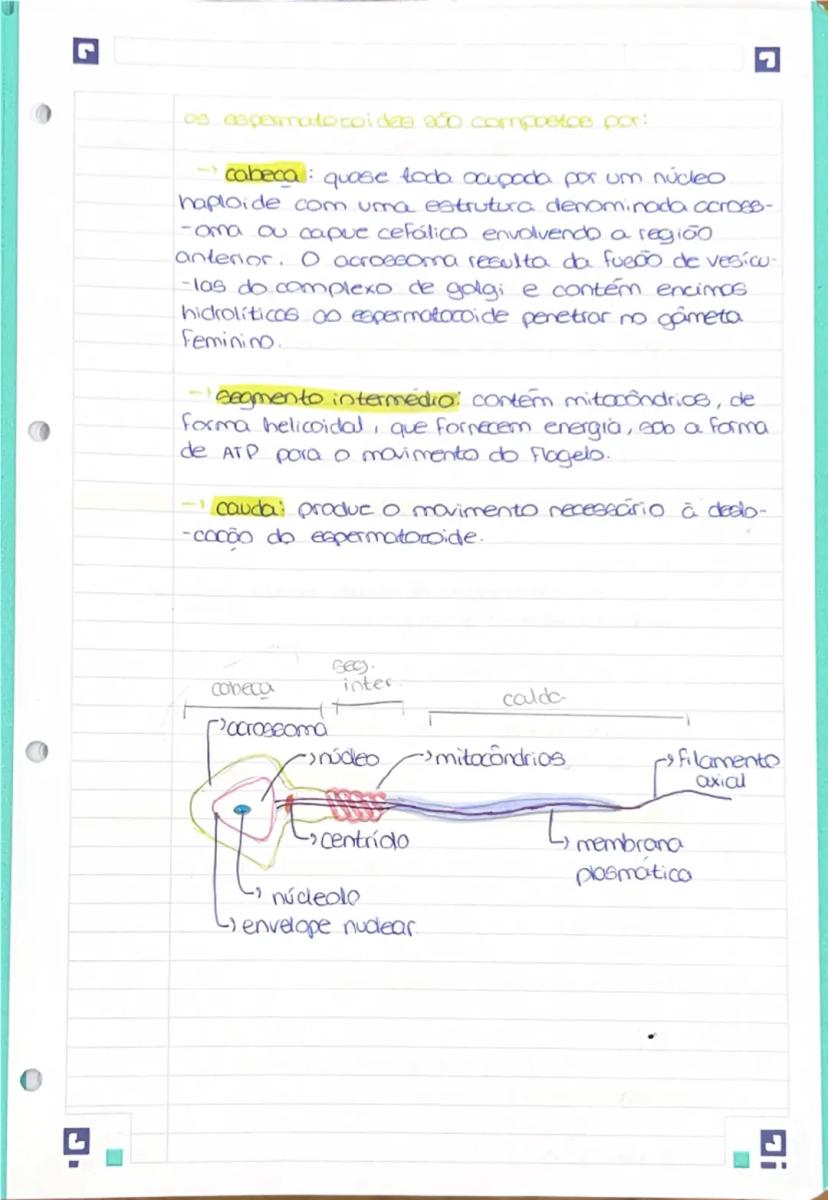 os espermatozoides são compostos por:
→ cabeça: quase toda ocupada por um núcleo
haploide com uma estrutura denominada across-
-oma ou capuz cefálico envolvendo a região
anterior. O acrossoma resulta da fusão de vesícu-
-las do complexo de golgi e contém enzimas
hidrolíticas ao espermatozoide penetrar no gâmeta
feminino.
→ segmento intermédio: contém mitocôndrias, de
forma helicoidal, que fornecem energia, sob a forma
de ATP para o movimento do flagelo.
→ cauda: produz o movimento necessário à deslo-
-cação do espermatozoide.
cabeça
seg.
inter.
calda
acrossoma
núcleo
mitocôndrias
filamento
axial
centríolo
membrana
plasmática
núcleolo
envelope nuclear